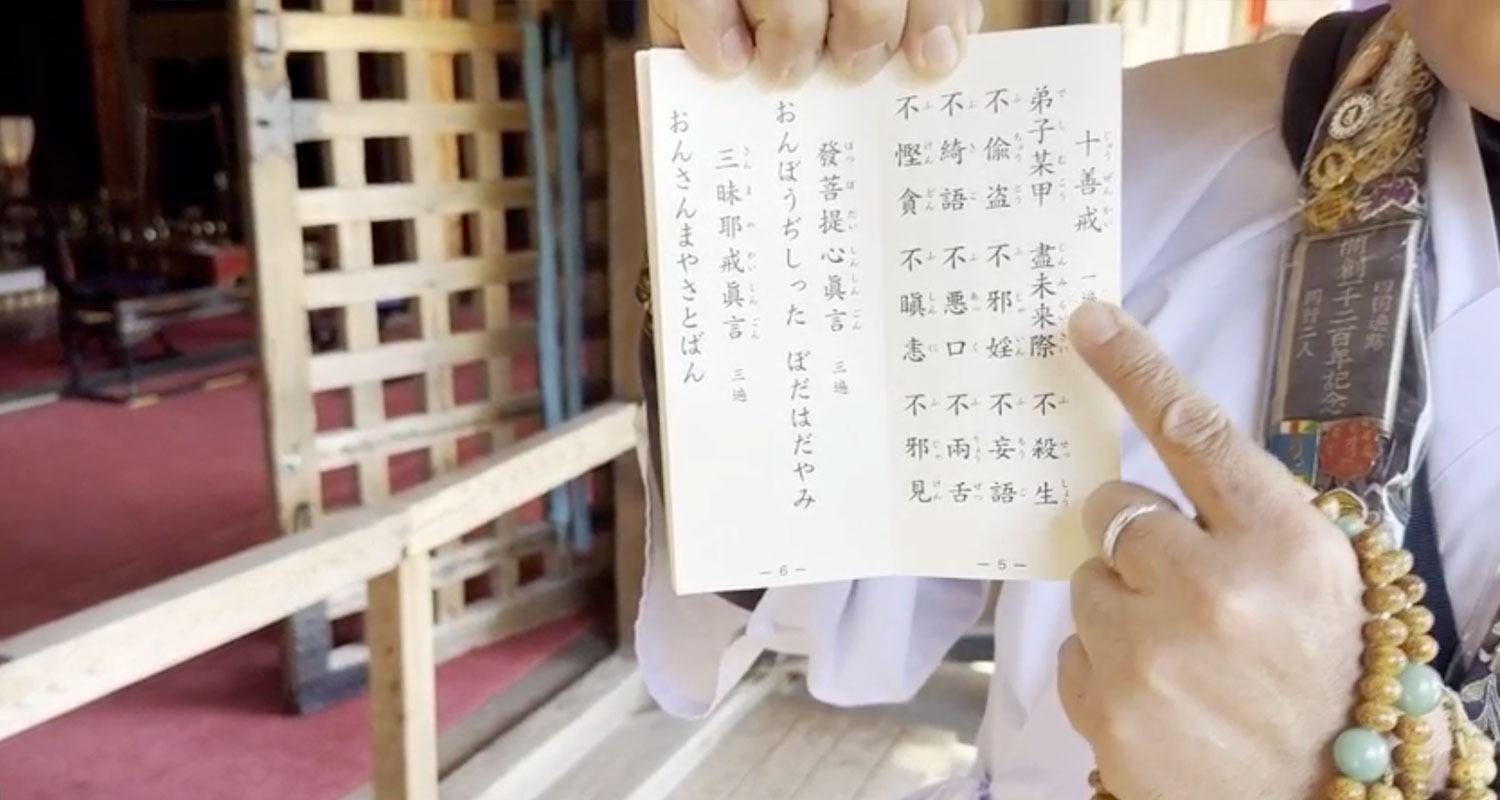 十善戒 一遍
弟子某甲 盡未来際 不殺生
不偸盗 不邪婬 不妄語
不綺語 不悪口 不兩舌
不慳貪 不瞋恚 不邪見
— 5 —
發菩提心眞言 三遍
おんぼうぢしった ぼだはだやみ
三昧耶戒眞言 三遍
おんさんまやさとばん
— 6 —
開創一千二百年記念
同行二人